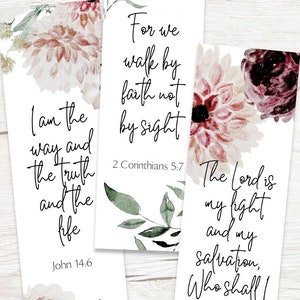 I am the
way and
the truth
and the
life
John 14:6
For we
walk by
faith not
by sight
2 Corinthians 5:7
The Lord is
my light
and my
salvation,
Who shall I